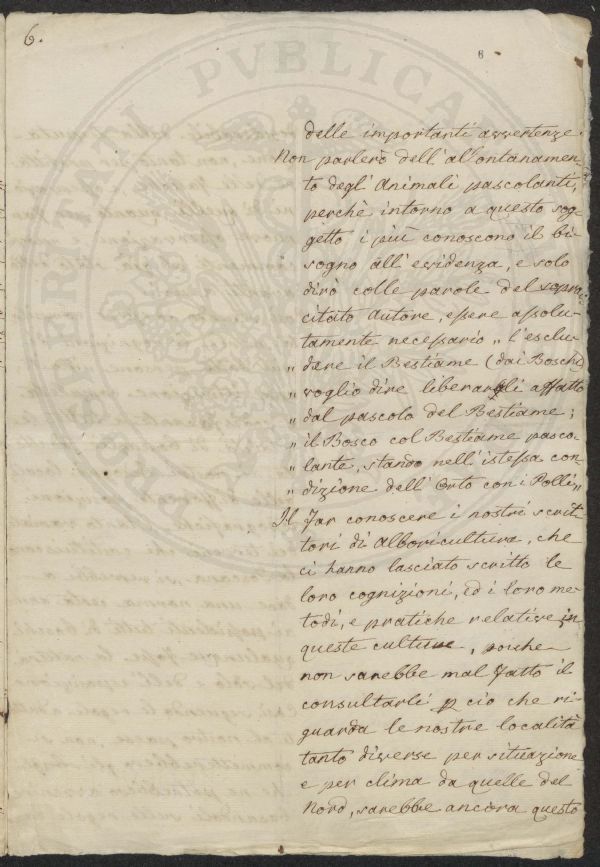 6.
6
PROSPERITATI PVBLICAE
delle importanti avvertenze.
Non parlerò dell' allontanamen-
to degl' animali pascolanti,
perchè intorno a questo sog-
getto i più conoscono il bi-
sogno all' evidenza, e solo
dirò colle parole del sopra
citato autore, essere assolu-
tamente necessario „ l'esclu-
„ dere il Bestiame (dai Boschi
„ voglio dire liberargli affatto
„ dal pascolo del Bestiame;
„ il Bosco col Bestiame pasco-
„ lante, stando nell' istessa con-
„ dizione dell' Orto con i Polli „
Il far conoscere i nostri scrit-
tori di alboricultura, che
ci hanno lasciato scritto le
loro cognizioni, ed i loro me-
todi, e pratiche relative in
queste culture, poiche
non sarebbe mal fatto il
consultarli p ciò che ri-
guarda le nostre località
tanto diverse per situazione
e per clima da quelle del
Nord, sarebbe ancora questo